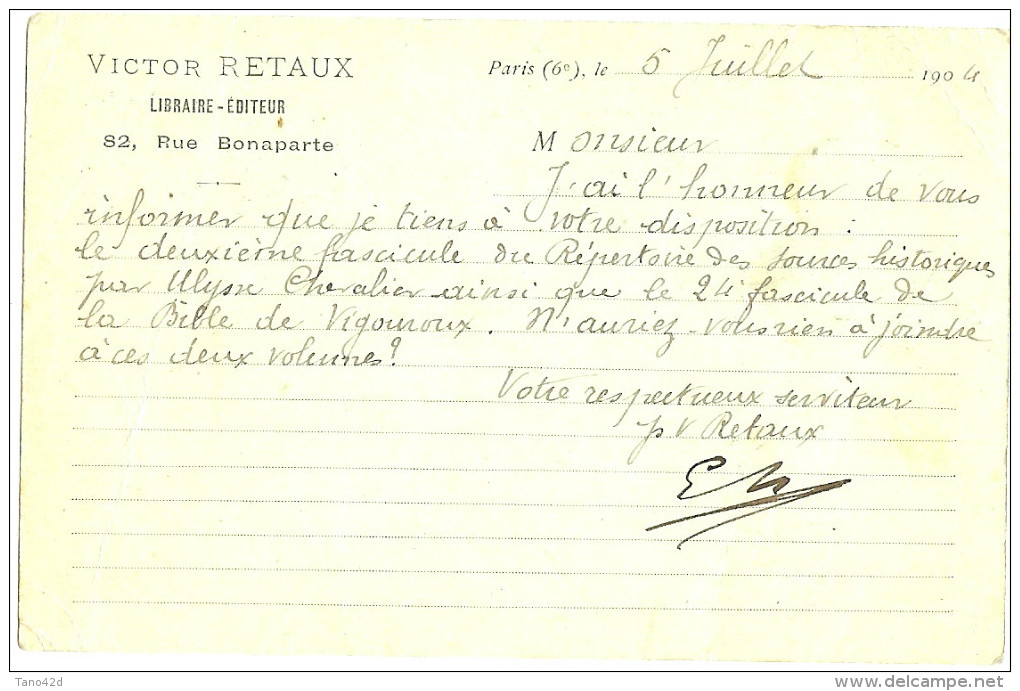 VICTOR RETAUX
LIBRAIRE-ÉDITEUR
82, Rue Bonaparte
Paris (6e), le 5 Juillet 1904
Monsieur
J'ai l'honneur de vous
informer que je tiens à votre disposition.
le deuxième fascicule du Répertoire des sources historiques
par Ulysse Chevalier ainsi que le 24 fascicule de
la Bible de Vigouroux. N'auriez-vous rien à joindre
à ces deux volumes?
Votre respectueux serviteur
p V Retaux
Tano42d
www.delcampe.net